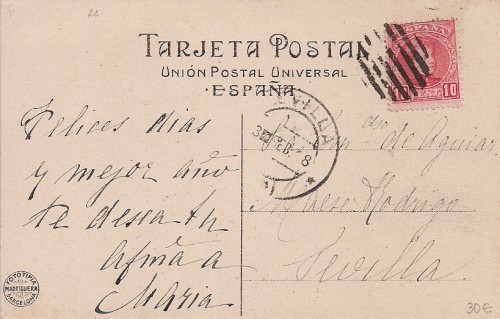 TARJETA POSTAL
UNIÓN POSTAL UNIVERSAL
ESPAÑA
ESPAÑA
10 CENT. 10
SEVILLA
FEB
8
Felices dias
y mejor año
te desea tu
afma
Maria
de Aguiar
Maese Rodrigo
Sevilla
FOTOTIPIA
MADRIGUERA
BARCELONA
30€